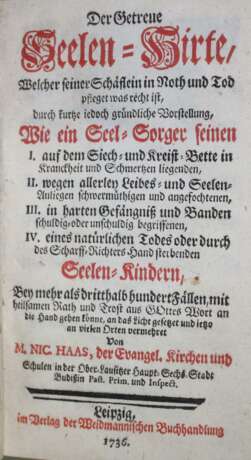 Der Getreue
Seelen-Hirte,
Welcher seiner Schäflein in Noth und Tod
pfleget was recht ist,
durch kurtze iedoch gründliche Vorstellung,
Wie ein Seel-Sorger seinen
I. auf dem Siech- und Kreist-Bette in
Kranckheit und Schmertzen liegenden,
II. wegen allerley Leibes- und Seelen-
Anliegen schwermüthigen und angefochtenen,
III. in harten Gefängniß und Banden
schuldig- oder unschuldig begriffenen,
IV. eines natürlichen Todes oder durch
des Scharff-Richters-Hand sterbenden
Seelen-Kindern,
Bey mehr als dritthalb hundert Fällen, mit
heilsamen Rath und Trost aus GOttes Wort an
die Hand gehen könne, an das Licht gesetzet und ietzo
an vielen Orten vermehret
Von
M. NIC. HAAS, der Evangel. Kirchen und
Schulen in der Ober-Lausitzer Haupt-Sechs-Stadt
Budißin Past. Prim. und Inspect.
Leipzig,
im Verlag der Weidmannischen Buchhandlung
1736.